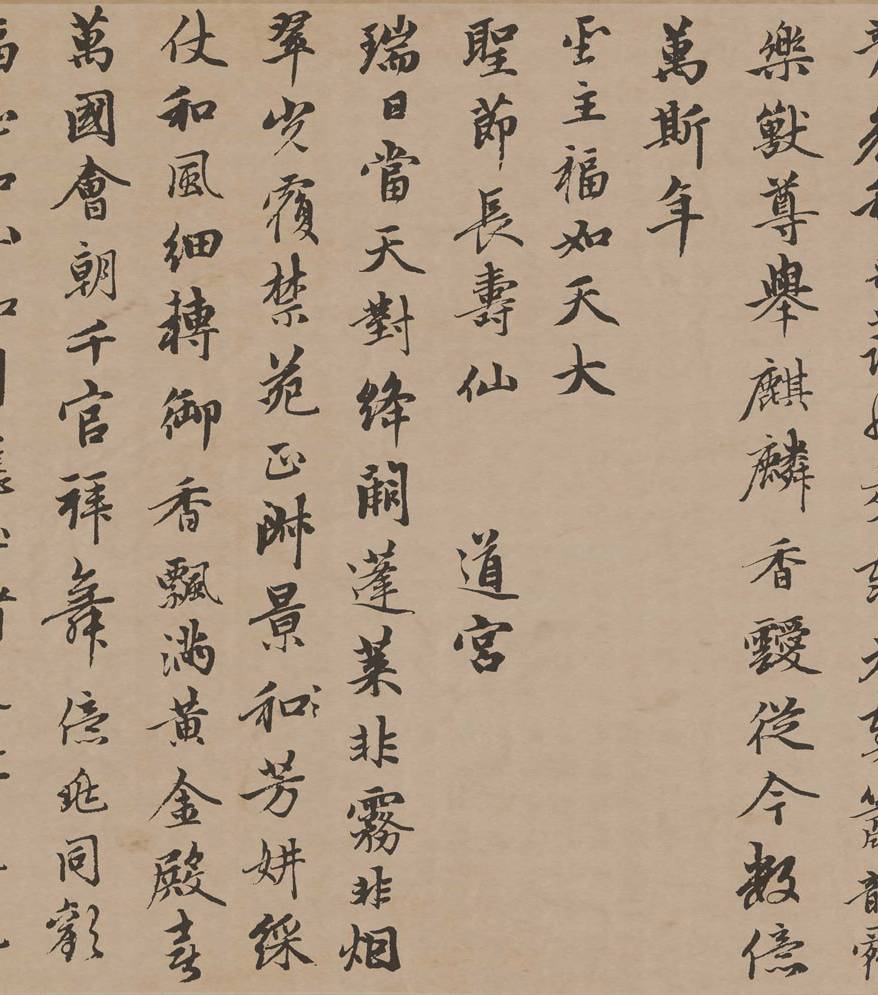 樂獻尊舉麒麟香靉從今數億
萬斯年
聖主福如天大
聖節長壽仙　道宮
瑞日當天對絳闕蓬萊非霧非烟
翠光覆禁苑正淑景和芳妍綵
仗和風細轉御香飄滿黃金殿喜
萬國會朝千官拜舞億兆同歡
福祉如